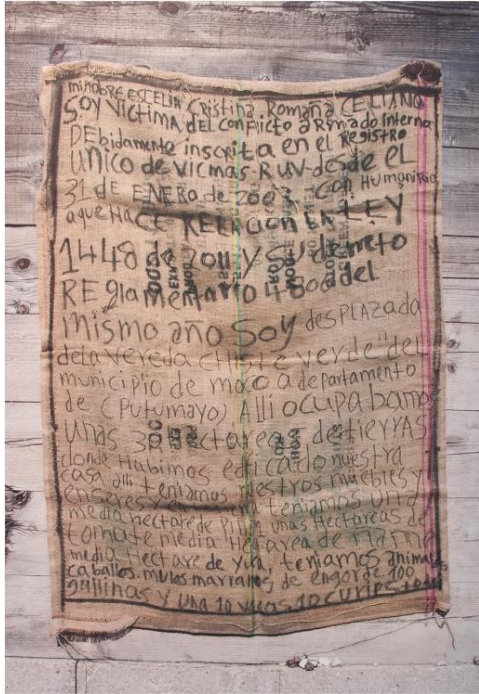 mi NOBRE ESCELIA Cristina Romaña CELIANO
SOY VICTIMA DEL CONFLICTO aRmado interno
DEbidamente inscrita en el Registro
UNICO de VICMAS-RUV desde EL
31 DE ENERO de 200 con Humanitria
a que HACE RELACION EN LEY
1448 de 2011 Y SU decreto
REglamentario 4800 del
mismo año SOY desPLAZADA
de La Vereda CHISTE verde" del
municipio de mocoa departamento
de (Putumayo) Alli ocupabamos
unas 30 Hectareas de tierras
donde Habimos edificado nuestra
casa alli teniamos nuestros muebles y
enseres y teniamos una
media hectare de Piña unas Hectareas de
tomate media Hectarea de
media Hectare de yuca, teniamos animales
caballos. mulas marranos de engorde 100
gallinas y una 10 vacas 10 curies